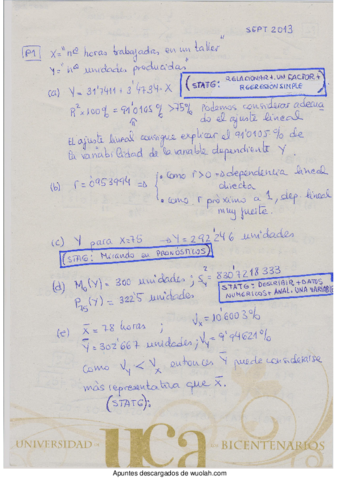 SEPT. 2013
P1 X = "nº horas trabajadas en un taller"
Y = "nº unidades producidas"
(a) Y = 31'7411 + 3'4734·X
STATG: RELACIONAR + UN FACTOR + REGRESION SIMPLE
R²×100% = 91'0105% > 75% Podemos considerar adecuado el ajuste lineal
El ajuste lineal consigue explicar el 91'0105% de
la variabilidad de la variable dependiente Y.
(b) r = 0'953994 ⇒ • como r>0 → dependencia lineal directa
• como r próximo a 1, dep. lineal muy fuerte.
(c) Y para X=75 → Y = 292'246 unidades
(STATG: Mirando en PRONÓSTICOS)
(d) M₀(Y) = 300 unidades; S²y = 830'7218333
P₇₅(Y) = 322'5 unidades.
STATG: DESCRIBIR + DATOS NUMERICOS + ANAL. UNA VARIABLE
(e) X̄ = 78 horas; Vx = 10'6003%
Ȳ = 302'667 unidades; Vy = 9'94621%
Como Vy < Vx entonces Ȳ puede considerarse
más representativa que X̄.
(STATG):
UNIVERSIDAD uca BICENTENARIOS
Apuntes descargados de wuolah.com